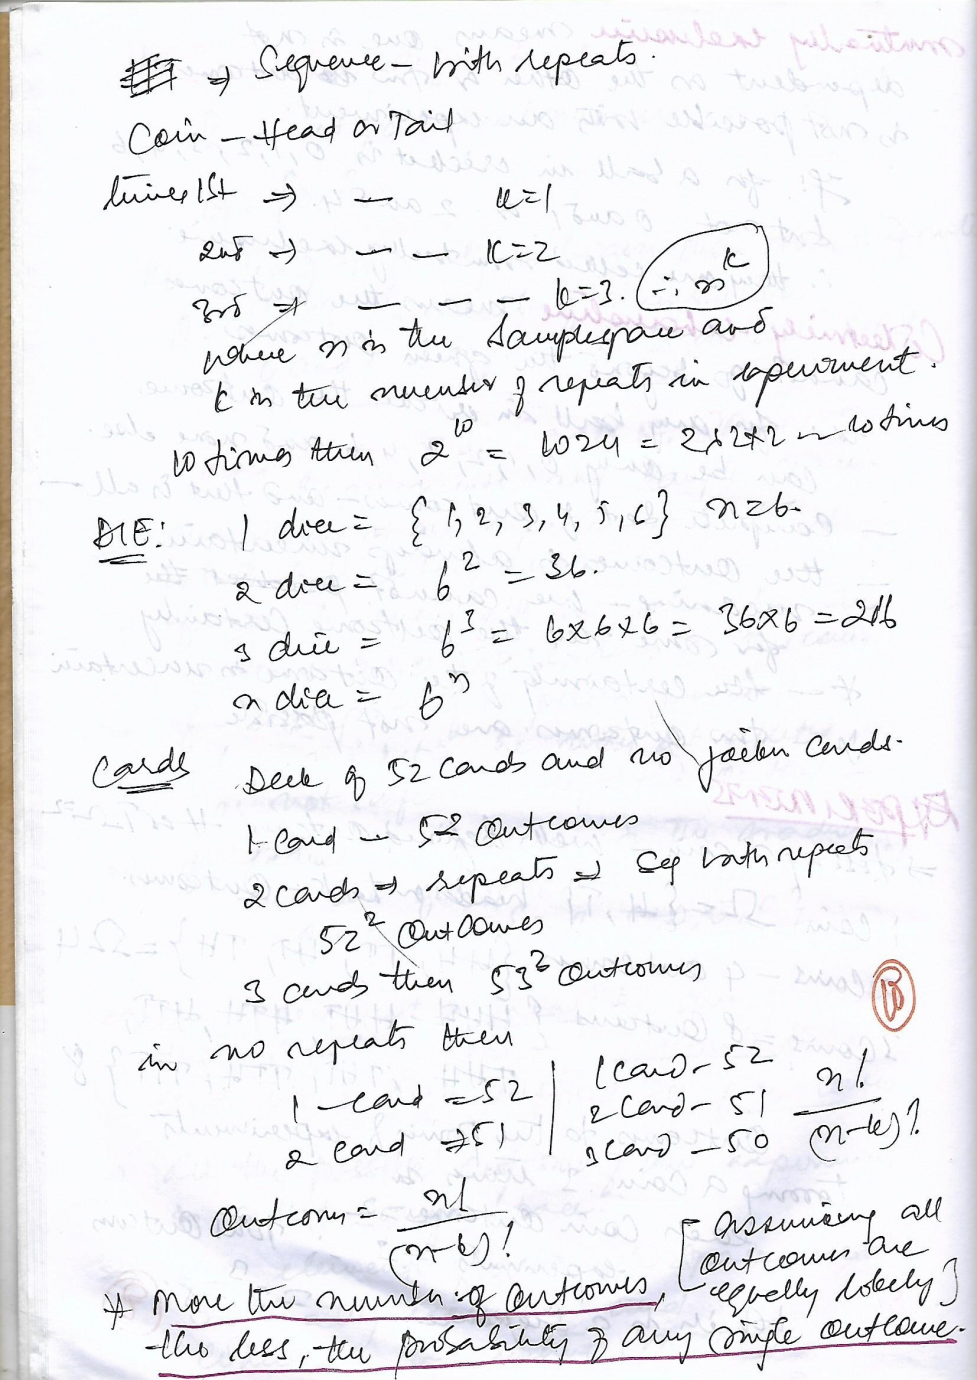 ⇒ Sequence - with repeats.
Coin - Head or Tail
times 1st ⇒ — k=1
2nd → — — k=2
3rd → — — — k=3. ∴ n^k
where n is the Samplespace and
k is the number of repeats in experiment.
10 times then 2^10 = 1024 = 2×2×2 ~ 10 times
DIE: 1 dice = {1, 2, 3, 4, 5, 6} n=6.
2 dice = 6^2 = 36.
3 dice = 6^3 = 6×6×6 = 36×6 = 216
n dice = 6^n
Cards Deck of 52 cards and no joker cards.
1 card - 52 outcomes
2 cards → repeats → seq with repeats
52^2 outcomes
3 cards then 53^2 outcomes
in no repeats then
1 - card = 52 | 1 card - 52
2 card → 51 | 2 card - 51 n!/(n-k)!
3 card - 50
Outcomes = n!/(n-k)!
[Assuming all
outcomes are
equally likely]
* More the number of outcomes,
the less, the probability of any single outcome.